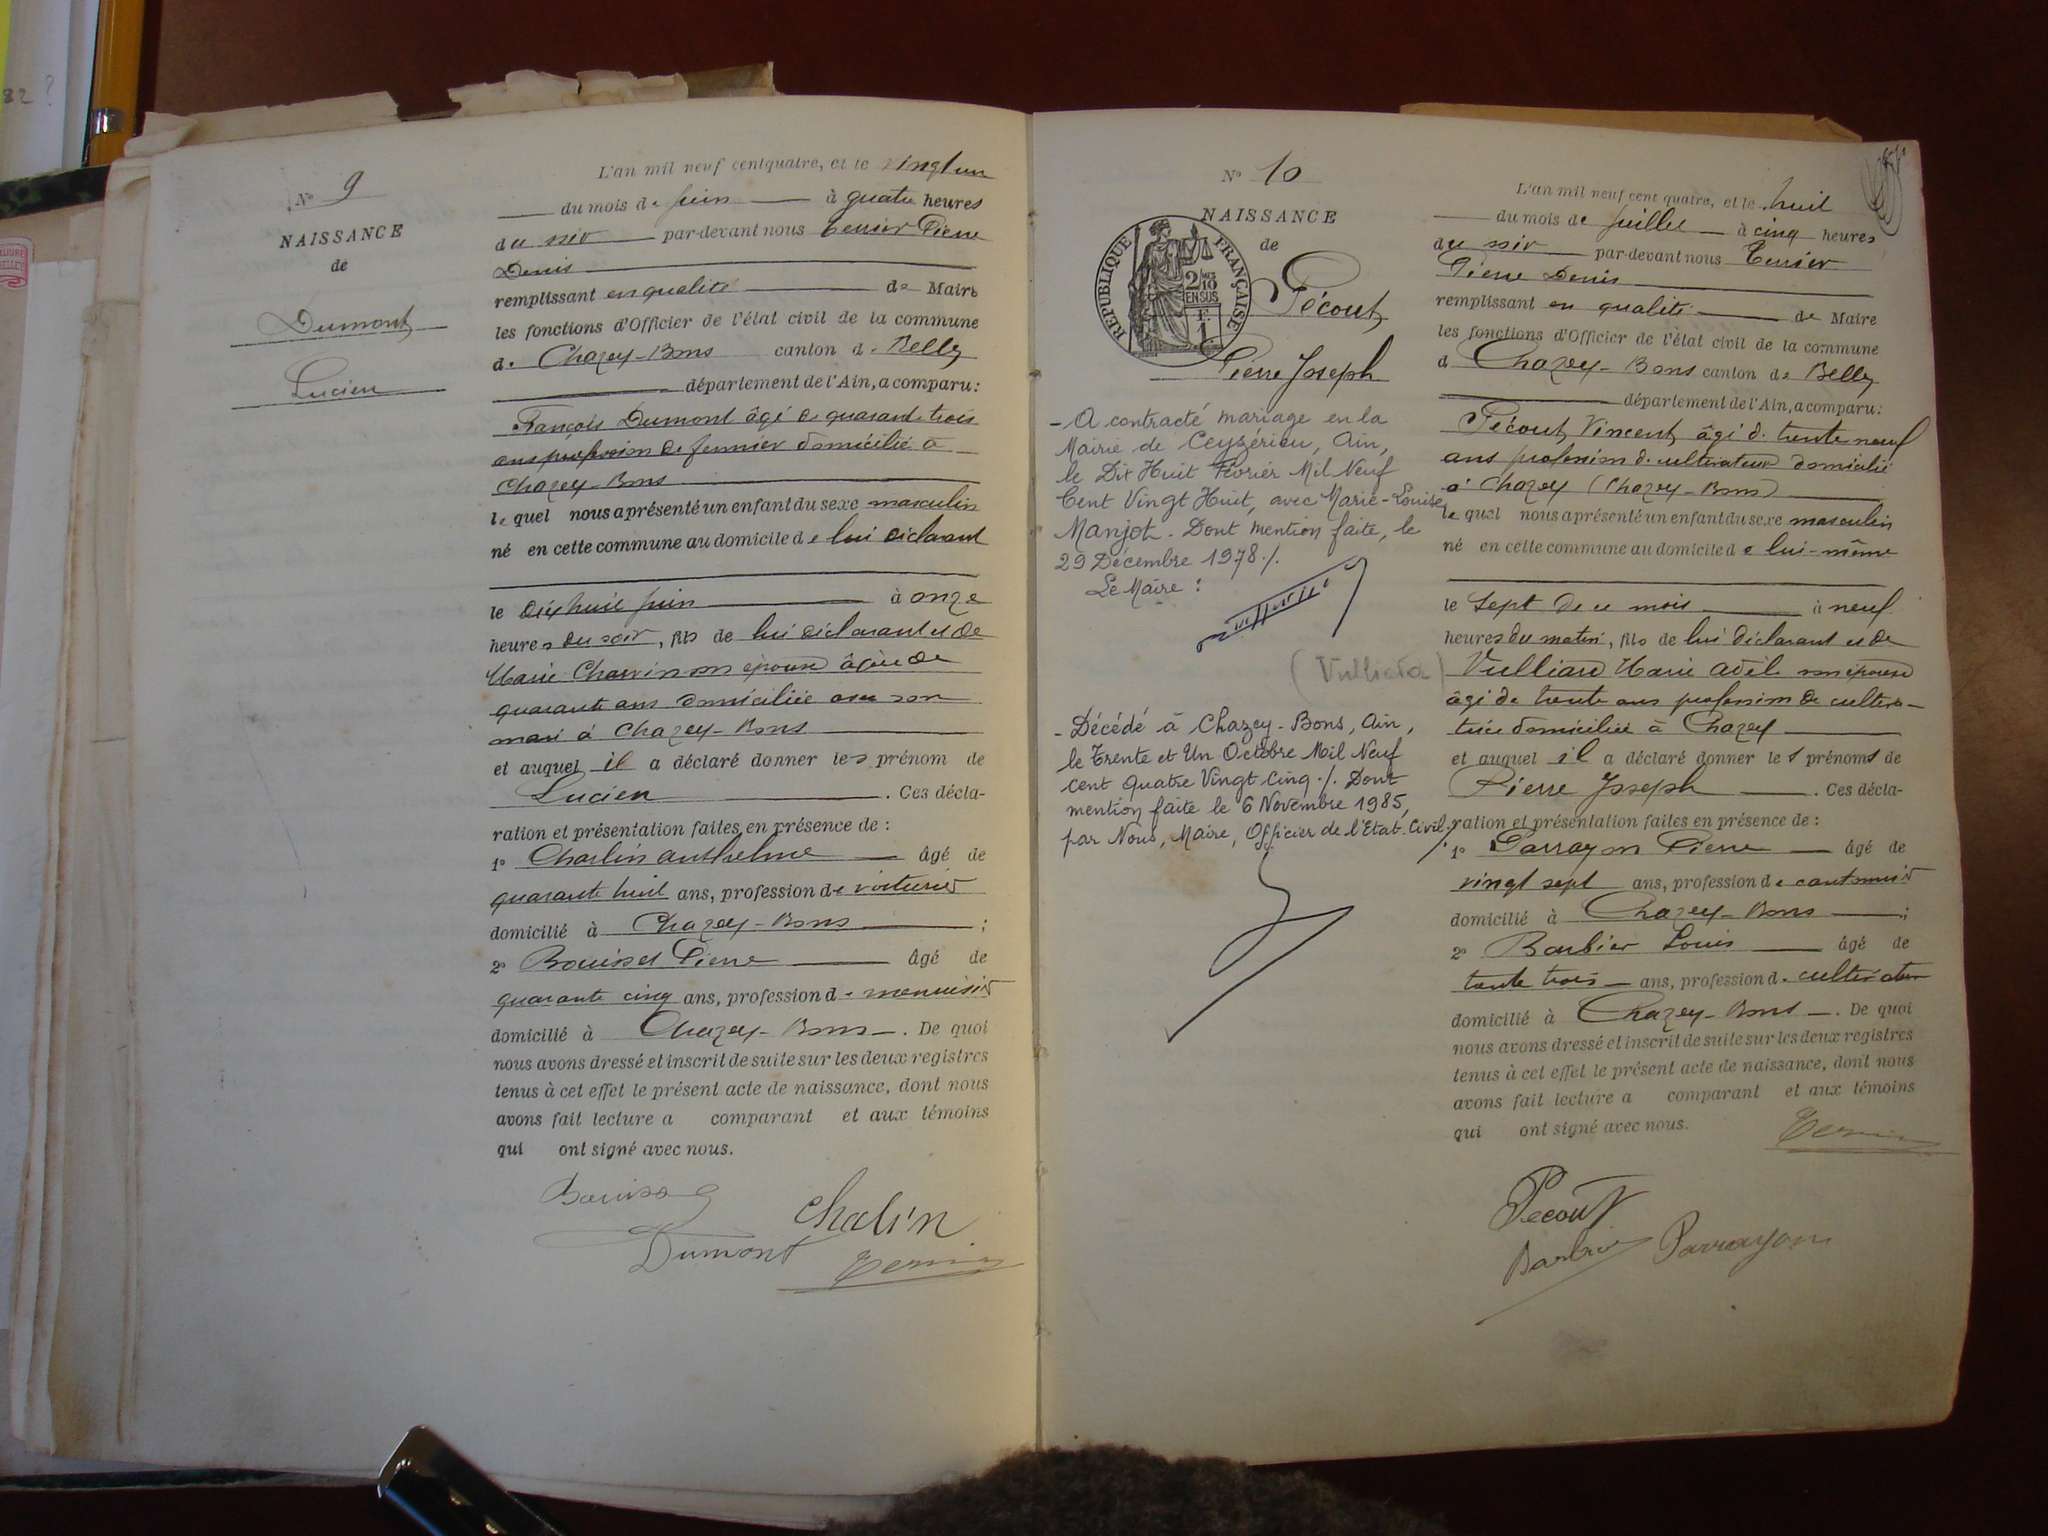 82 ?
N° 9
NAISSANCE
de
Dumont
Lucien
L'an mil neuf cent quatre, et le vingt un
du mois de juin à quatre heures
du soir par-devant nous Tenier Pierre
Denis
remplissant en qualité de Maire
les fonctions d'Officier de l'état civil de la commune
de Chazey-Bons canton de Belley
département de l'Ain, a comparu :
François Dumont âgé de quarante trois
ans profession de fermier domicilié à
Chazey-Bons
lequel nous a présenté un enfant du sexe masculin
né en cette commune au domicile de lui déclarant
le dix huit juin à onze
heures du soir, fils de lui déclarant et de
Marie son épouse âgée de
quarante ans domiciliée avec son
mari à Chazey-Bons
et auquel il a déclaré donner les prénom de
Lucien. Ces décla-
ration et présentation faites en présence de :
1° Charlin anthelme âgé de
quarante huit ans, profession de voiturier
domicilié à Chazey-Bons ;
2° Bouisset Pierre âgé de
quarante cinq ans, profession de menuisier
domicilié à Chazey-Bons. De quoi
nous avons dressé et inscrit de suite sur les deux registres
tenus à cet effet le présent acte de naissance, dont nous
avons fait lecture a comparant et aux témoins
qui ont signé avec nous.
Dumont
Chalin
N° 10
NAISSANCE
de
REPUBLIQUE FRANÇAISE
2/10
EN SUS
F.
1
Pécout
Pierre Joseph
- A contracté mariage en la
Mairie de Ceyzérieu, Ain,
le Dix Huit Février Mil Neuf
Cent Vingt Huit, avec Marie-Louise
Manjot. Dont mention faite, le
29 Décembre 1978./.
Le Maire :
- Décédé à Chazey-Bons, Ain,
le Trente et Un Octobre Mil Neuf
cent Quatre Vingt Cinq./. Dont
mention faite le 6 Novembre 1985,
par Nous, Maire, Officier de l'Etat-Civil./.
L'an mil neuf cent quatre, et le huit
du mois de juillet à cinq heures
du soir par-devant nous Tenier
Pierre Denis
remplissant en qualité de Maire
les fonctions d'Officier de l'état civil de la commune
d Chazey-Bons canton de Belley
département de l'Ain, a comparu :
Pécout Vincent âgé de trente neuf
ans profession de cultivateur domicilié
à Chazey (Chazey-Bons)
lequel nous a présenté un enfant du sexe masculin
né en cette commune au domicile de lui-même
le sept de ce mois à neuf
heures du matin, fils de lui déclarant et de
Vulliard Marie Adèle son épouse
âgé de trente ans profession de cultiva-
trice domiciliée à Chazey
et auquel il a déclaré donner les prénoms de
Pierre Joseph. Ces décla-
ration et présentation faites en présence de :
1° Parrayon Pierre âgé de
vingt sept ans, profession de cantonnier
domicilié à Chazey-Bons ;
2° Barbier Louis âgé de
trente trois ans, profession de cultivateur
domicilié à Chazey-Bons. De quoi
nous avons dressé et inscrit de suite sur les deux registres
tenus à cet effet le présent acte de naissance, dont nous
avons fait lecture a comparant et aux témoins
qui ont signé avec nous.
Pecout
Barbier Parrayon